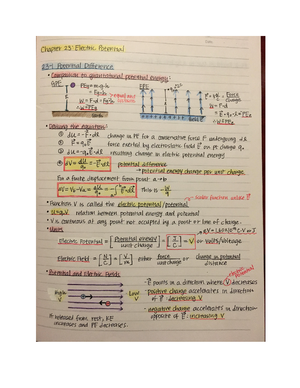 Chapter 23: Electric Potential
23-1 Potential Difference
• Comparison to gravitational potential energy:
GPE
EPE
• Deriving the equation:
① dU = -F·dl change in PE for a conservative force F undergoing dl
② F = q₀E force exerted by electrostatic field E on pt charge q₀
③ dU = -q₀E·dl resulting change in electric potential energy
④ dV = dU/q₀ = -E·dl potential difference
→ potential energy change per unit charge
For a finite displacement from point a → b
• Function V is called the electric potential/potential
• U = q₀V relation between potential energy and potential
• V is continuous at any point not occupied by a point or line of charge.
• Units
Electric Potential = [Potential energy / unit charge] = [J/C] = V or volts/voltage
Electric Field = [N/C] = [V/m] either force/unit charge or change in potential/distance
• Potential and Electric Fields
High V
Low V
• E points in a direction where V decreases
• positive charge accelerates in direction of E: decreasing V
• negative charge accelerates in direction opposite of E: increasing V
If released from rest, KE increases and PE decreases.